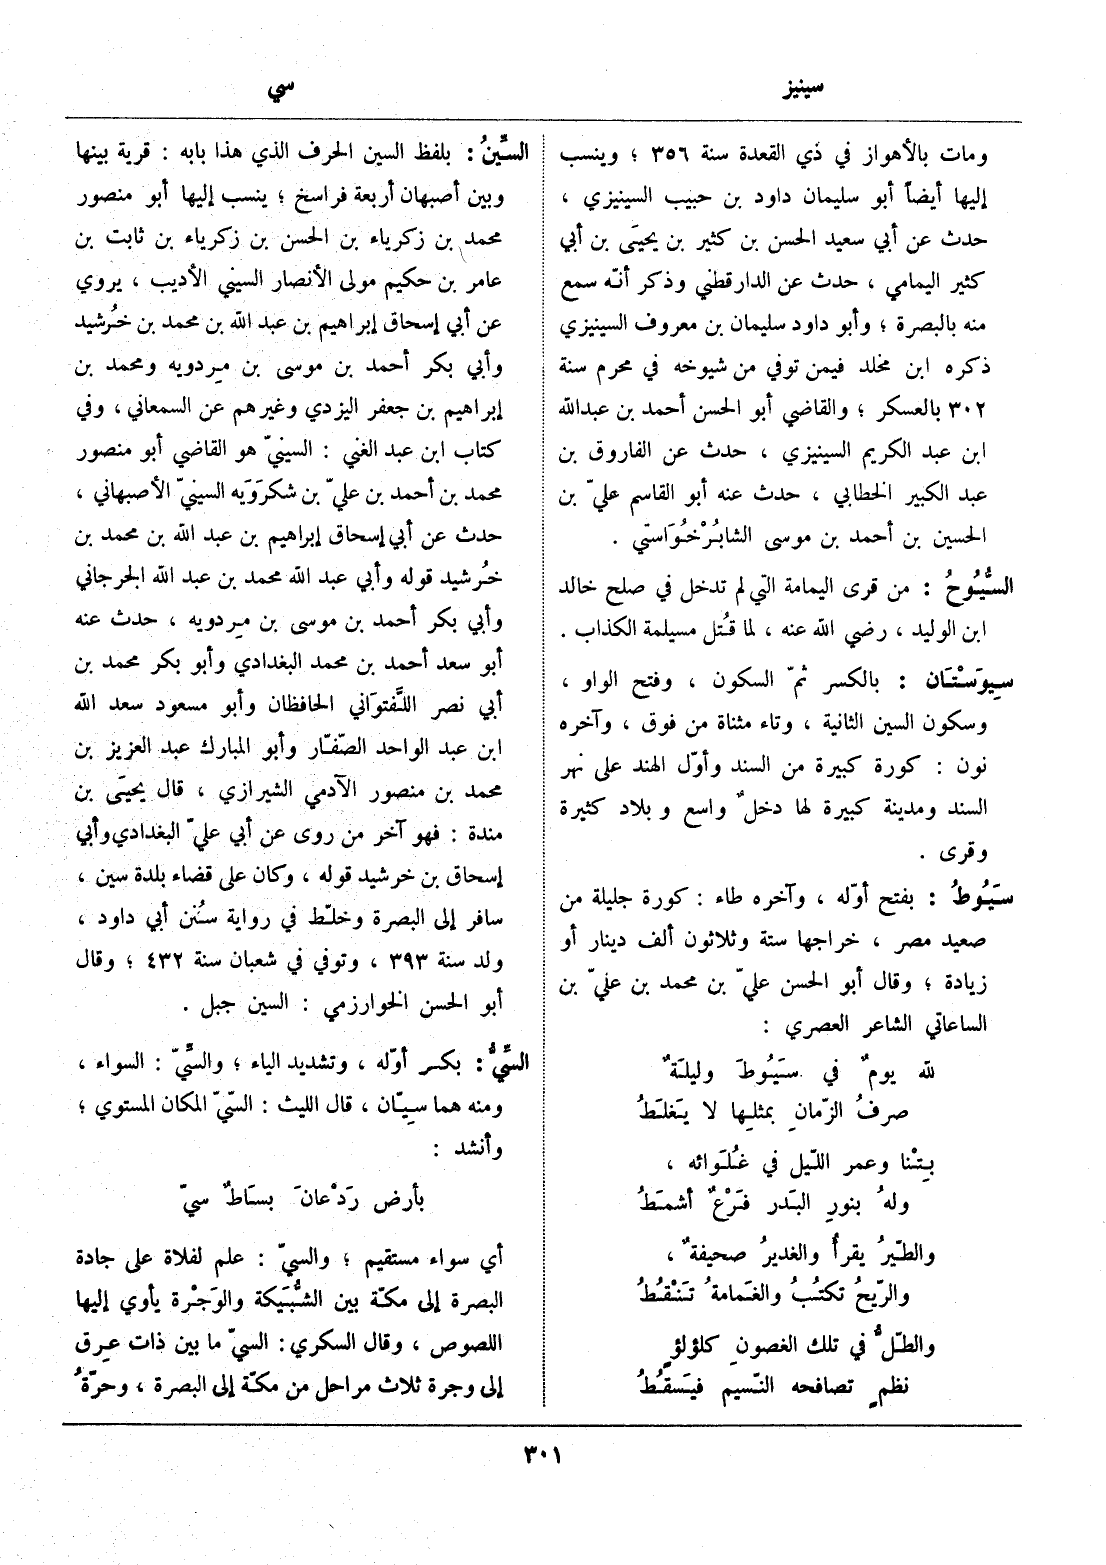 سينيز
سي
ومات بالأهواز في ذي القعدة سنة ٣٥٦ ؛ وينسب
إليها أيضاً أبو سليمان داود بن حبيب السينيزي ،
حدث عن أبي سعيد الحسن بن كثير بن يحيَى بن أبي
كثير اليمامي ، حدث عن الدارقطني وذكر أنّه سمع
منه بالبصرة ؛ وأبو داود سليمان بن معروف السينيزي
ذكره ابن مخلد فيمن توفي من شيوخه في محرم سنة
٣٠٢ بالعسكر ؛ والقاضي أبو الحسن أحمد بن عبدالله
ابن عبد الكريم السينيزي ، حدث عن الفاروق بن
عبد الكبير الخطابي ، حدث عنه أبو القاسم عليّ بن
الحسين بن أحمد بن موسى الشابُرْخُوَاستي .
السُّيُوحُ : من قرى اليمامة التي لم تدخل في صلح خالد
ابن الوليد ، رضي الله عنه ، لما قُتل مسيلمة الكذاب .
سِيوَسْتَان : بالكسر ثمّ السكون ، وفتح الواو ،
وسكون السين الثانية ، وتاء مثناة من فوق ، وآخره
نون : كورة كبيرة من السند وأوّل الهند على نهر
السند ومدينة كبيرة لها دخلٌ واسع وبلاد كثيرة
وقرى .
سَيُوطُ : بفتح أوّله ، وآخره طاء : كورة جليلة من
صعيد مصر ، خراجها ستة وثلاثون ألف دينار أو
زيادة ؛ وقال أبو الحسن عليّ بن محمد بن عليّ بن
الساعاتي الشاعر العصري :
لله يومٌ في سَيُوطَ وليلَةٌ
صرفُ الزّمانِ بمثلِها لا يَغلَطُ
بِتْنا وعمر اللّيل في غُلَوائه ،
ولهُ بنورِ البَدر فَرْعٌ أشمَطُ
والطّيرُ يقرأُ والغديرُ صحيفةٌ ،
والرّيحُ تكتُبُ والغَمامةُ تَنْقُطُ
والطّلُّ في تلك الغصونِ كلؤلؤٍ
نظمٍ تصافحه النّسيم فيَسقُطُ
السِّينُ : بلفظ السين الحرف الذي هذا بابه : قرية بينها
وبين أصبهان أربعة فراسخ ؛ ينسب إليها أبو منصور
محمد بن زكرياء بن الحسن بن زكرياء بن ثابت بن
عامر بن حكيم مولى الأنصار السيني الأديب ، يروي
عن أبي إسحاق إبراهيم بن عبد الله بن محمد بن خُرشيد
وأبي بكر أحمد بن موسى بن مردويه ومحمد بن
إبراهيم بن جعفر اليزدي وغيرهم عن السمعاني ، وفي
كتاب ابن عبد الغني : السينيّ هو القاضي أبو منصور
محمد بن أحمد بن عليّ بن شكرَوَيه السينيّ الأصبهاني ،
حدث عن أبي إسحاق إبراهيم بن عبد الله بن محمد بن
خُرشيد قوله وأبي عبد الله محمد بن عبد الله الجرجاني
وأبي بكر أحمد بن موسى بن مردويه ، حدث عنه
أبو سعد أحمد بن محمد البغدادي وأبو بكر محمد بن
أبي نصر اللَّفتوَاني الحافظان وأبو مسعود سعد الله
ابن عبد الواحد الصّفّار وأبو المبارك عبد العزيز بن
محمد بن منصور الآدمي الشيرازي ، قال يحيَى بن
مندة : فهو آخر من روى عن أبي عليّ البغدادي وأبي
إسحاق بن خرشيد قوله ، وكان على قضاء بلدة سين ،
سافر إلى البصرة وخلّط في رواية سُنن أبي داود ،
ولد سنة ٣٩٣ ، وتوفي في شعبان سنة ٤٣٢ ؛ وقال
أبو الحسن الخوارزمي : السين جبل .
السِّيُّ : بكسر أوّله ، وتشديد الياء ؛ والسِّيّ : السواء ،
ومنه هما سيّان ، قال الليث : السّيّ المكان المستوي ؛
وأنشد :
بأرض رَدْعانَ بسَاطٌ سيّ
أي سواء مستقيم ؛ والسيّ : علم لفلاة على جادة
البصرة إلى مكّة بين الشُّبَيكة والوَجْرة يأوي إليها
اللصوص ، وقال السكري : السيّ ما بين ذات عِرق
إلى وجرة ثلاث مراحل من مكّة إلى البصرة ، وحرّةُ
٣٠١